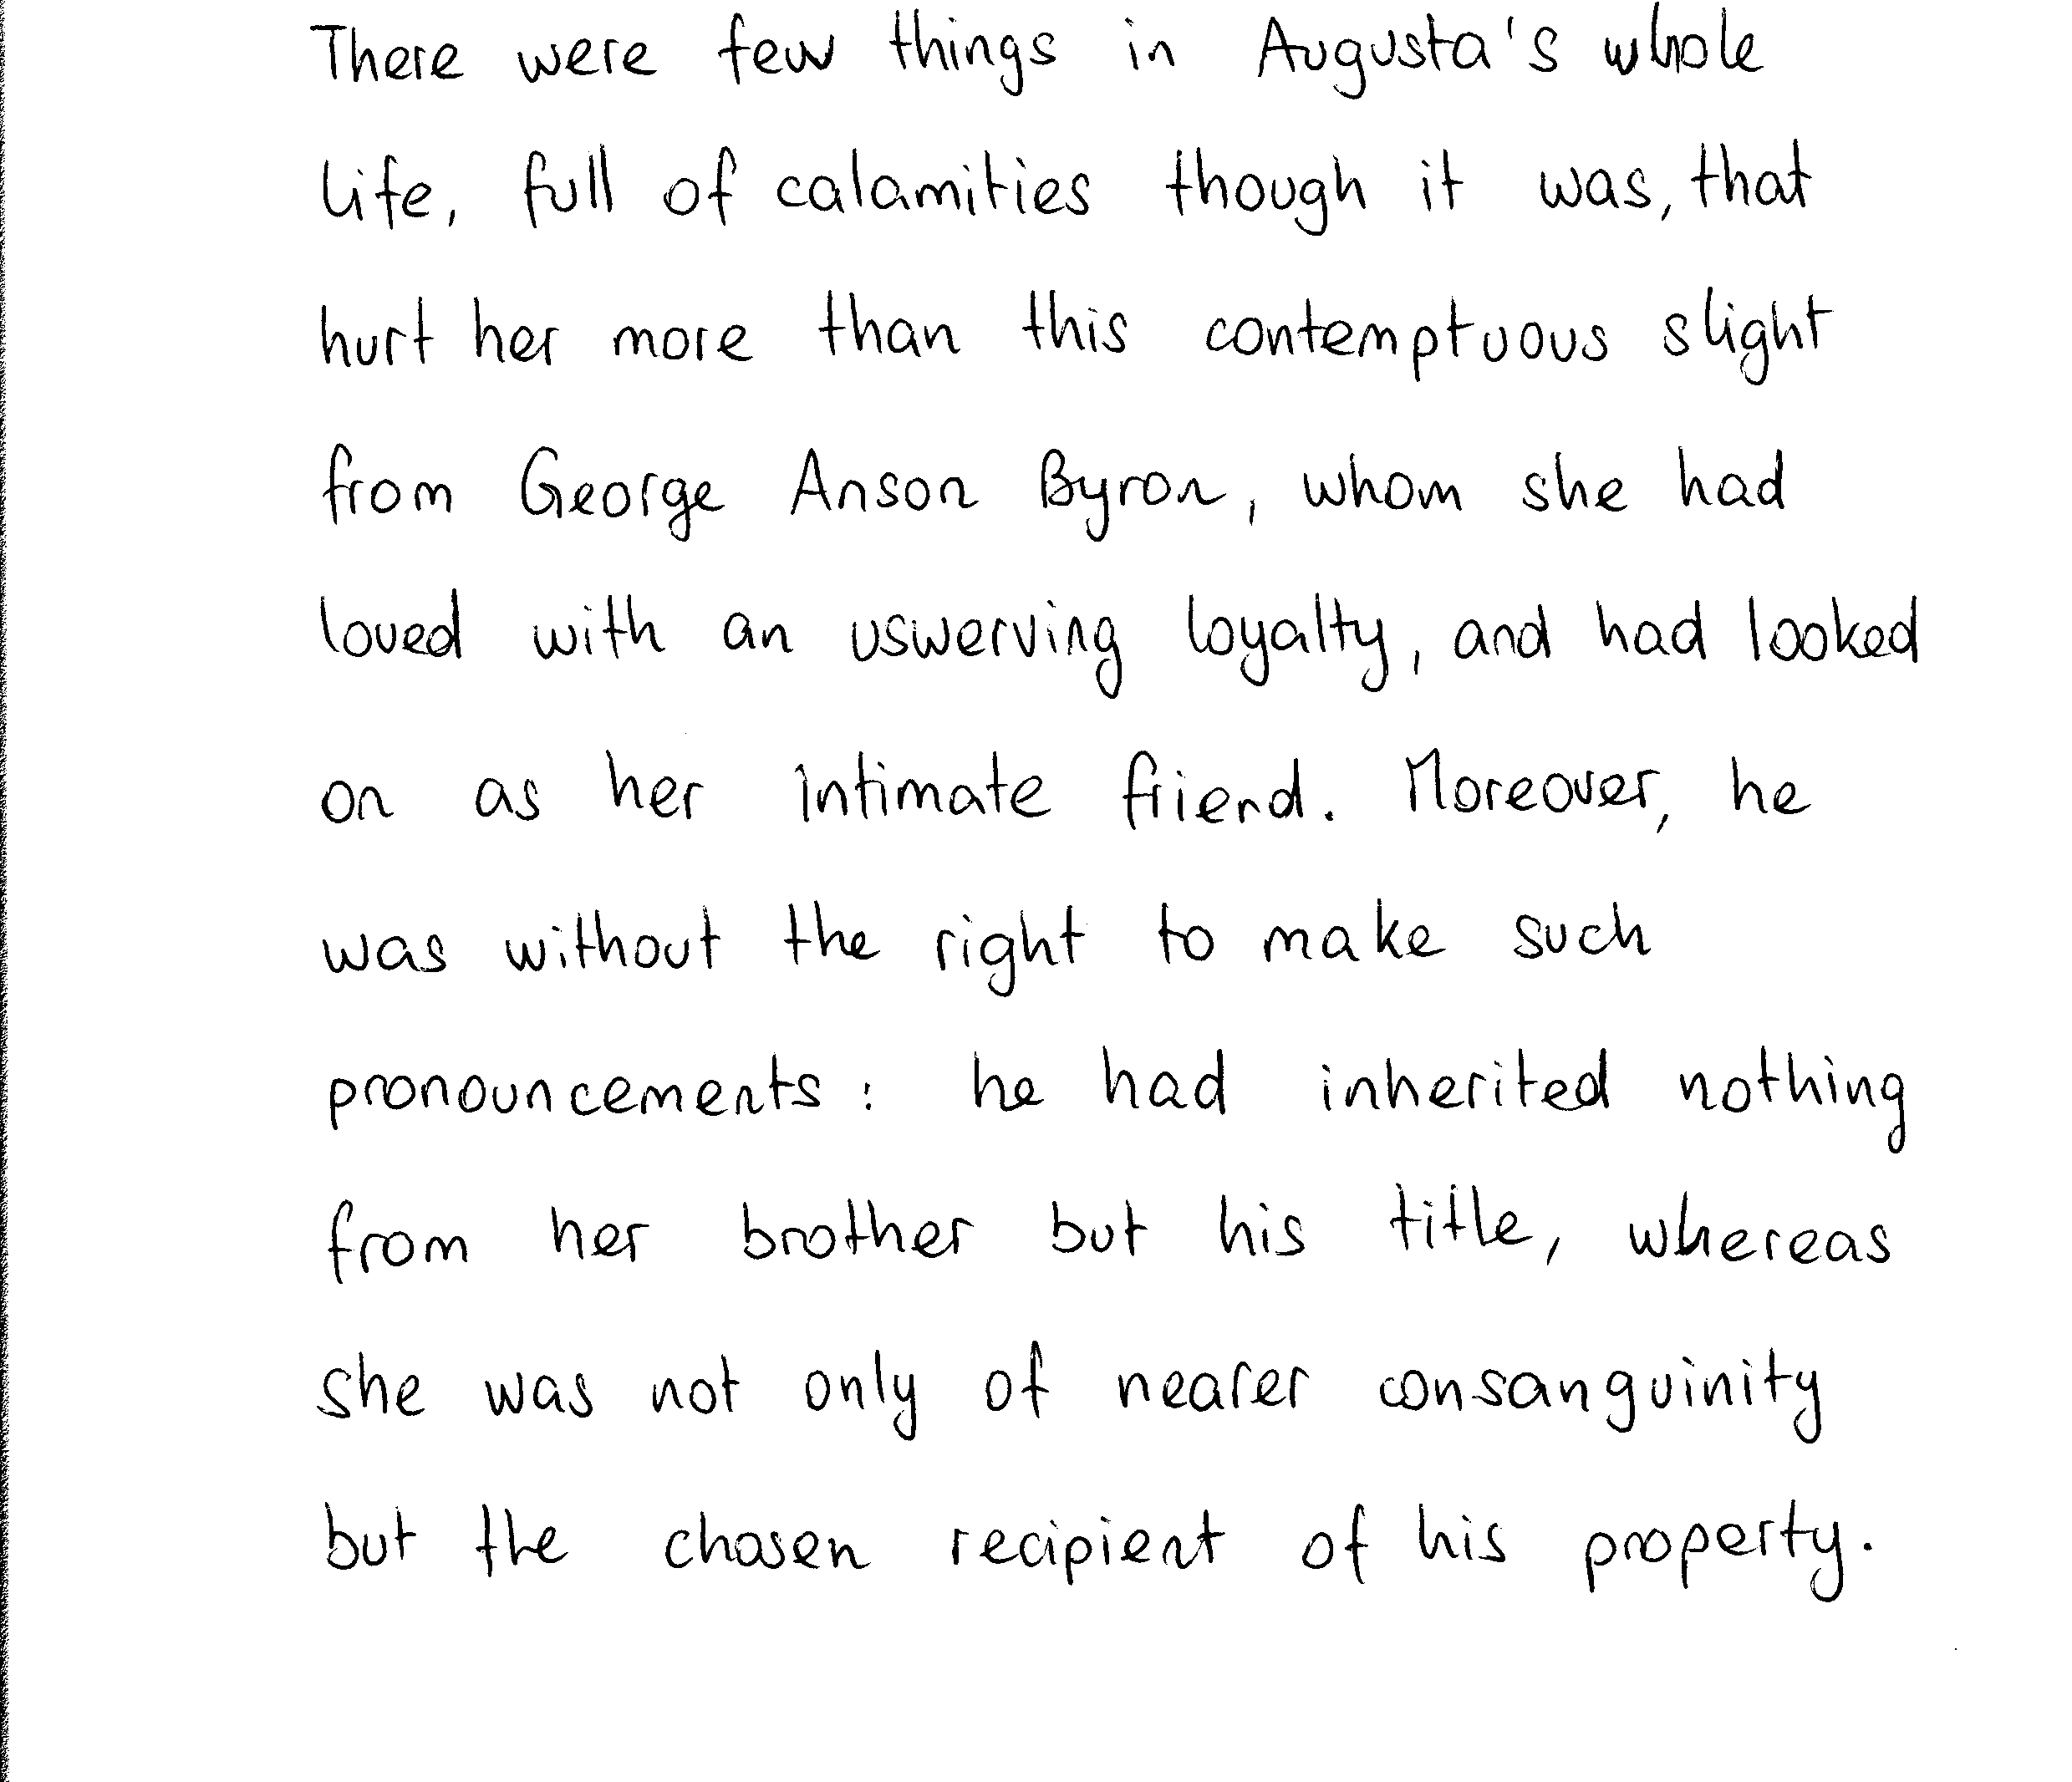 There were few things in Augusta's whole
life, full of calamities though it was, that
hurt her more than this contemptuous slight
from George Anson Byron, whom she had
loved with an uswerving loyalty, and had looked
on as her intimate friend. Moreover, he
was without the right to make such
pronouncements: he had inherited nothing
from her brother but his title, whereas
she was not only of nearer consanguinity
but the chosen recipient of his property.